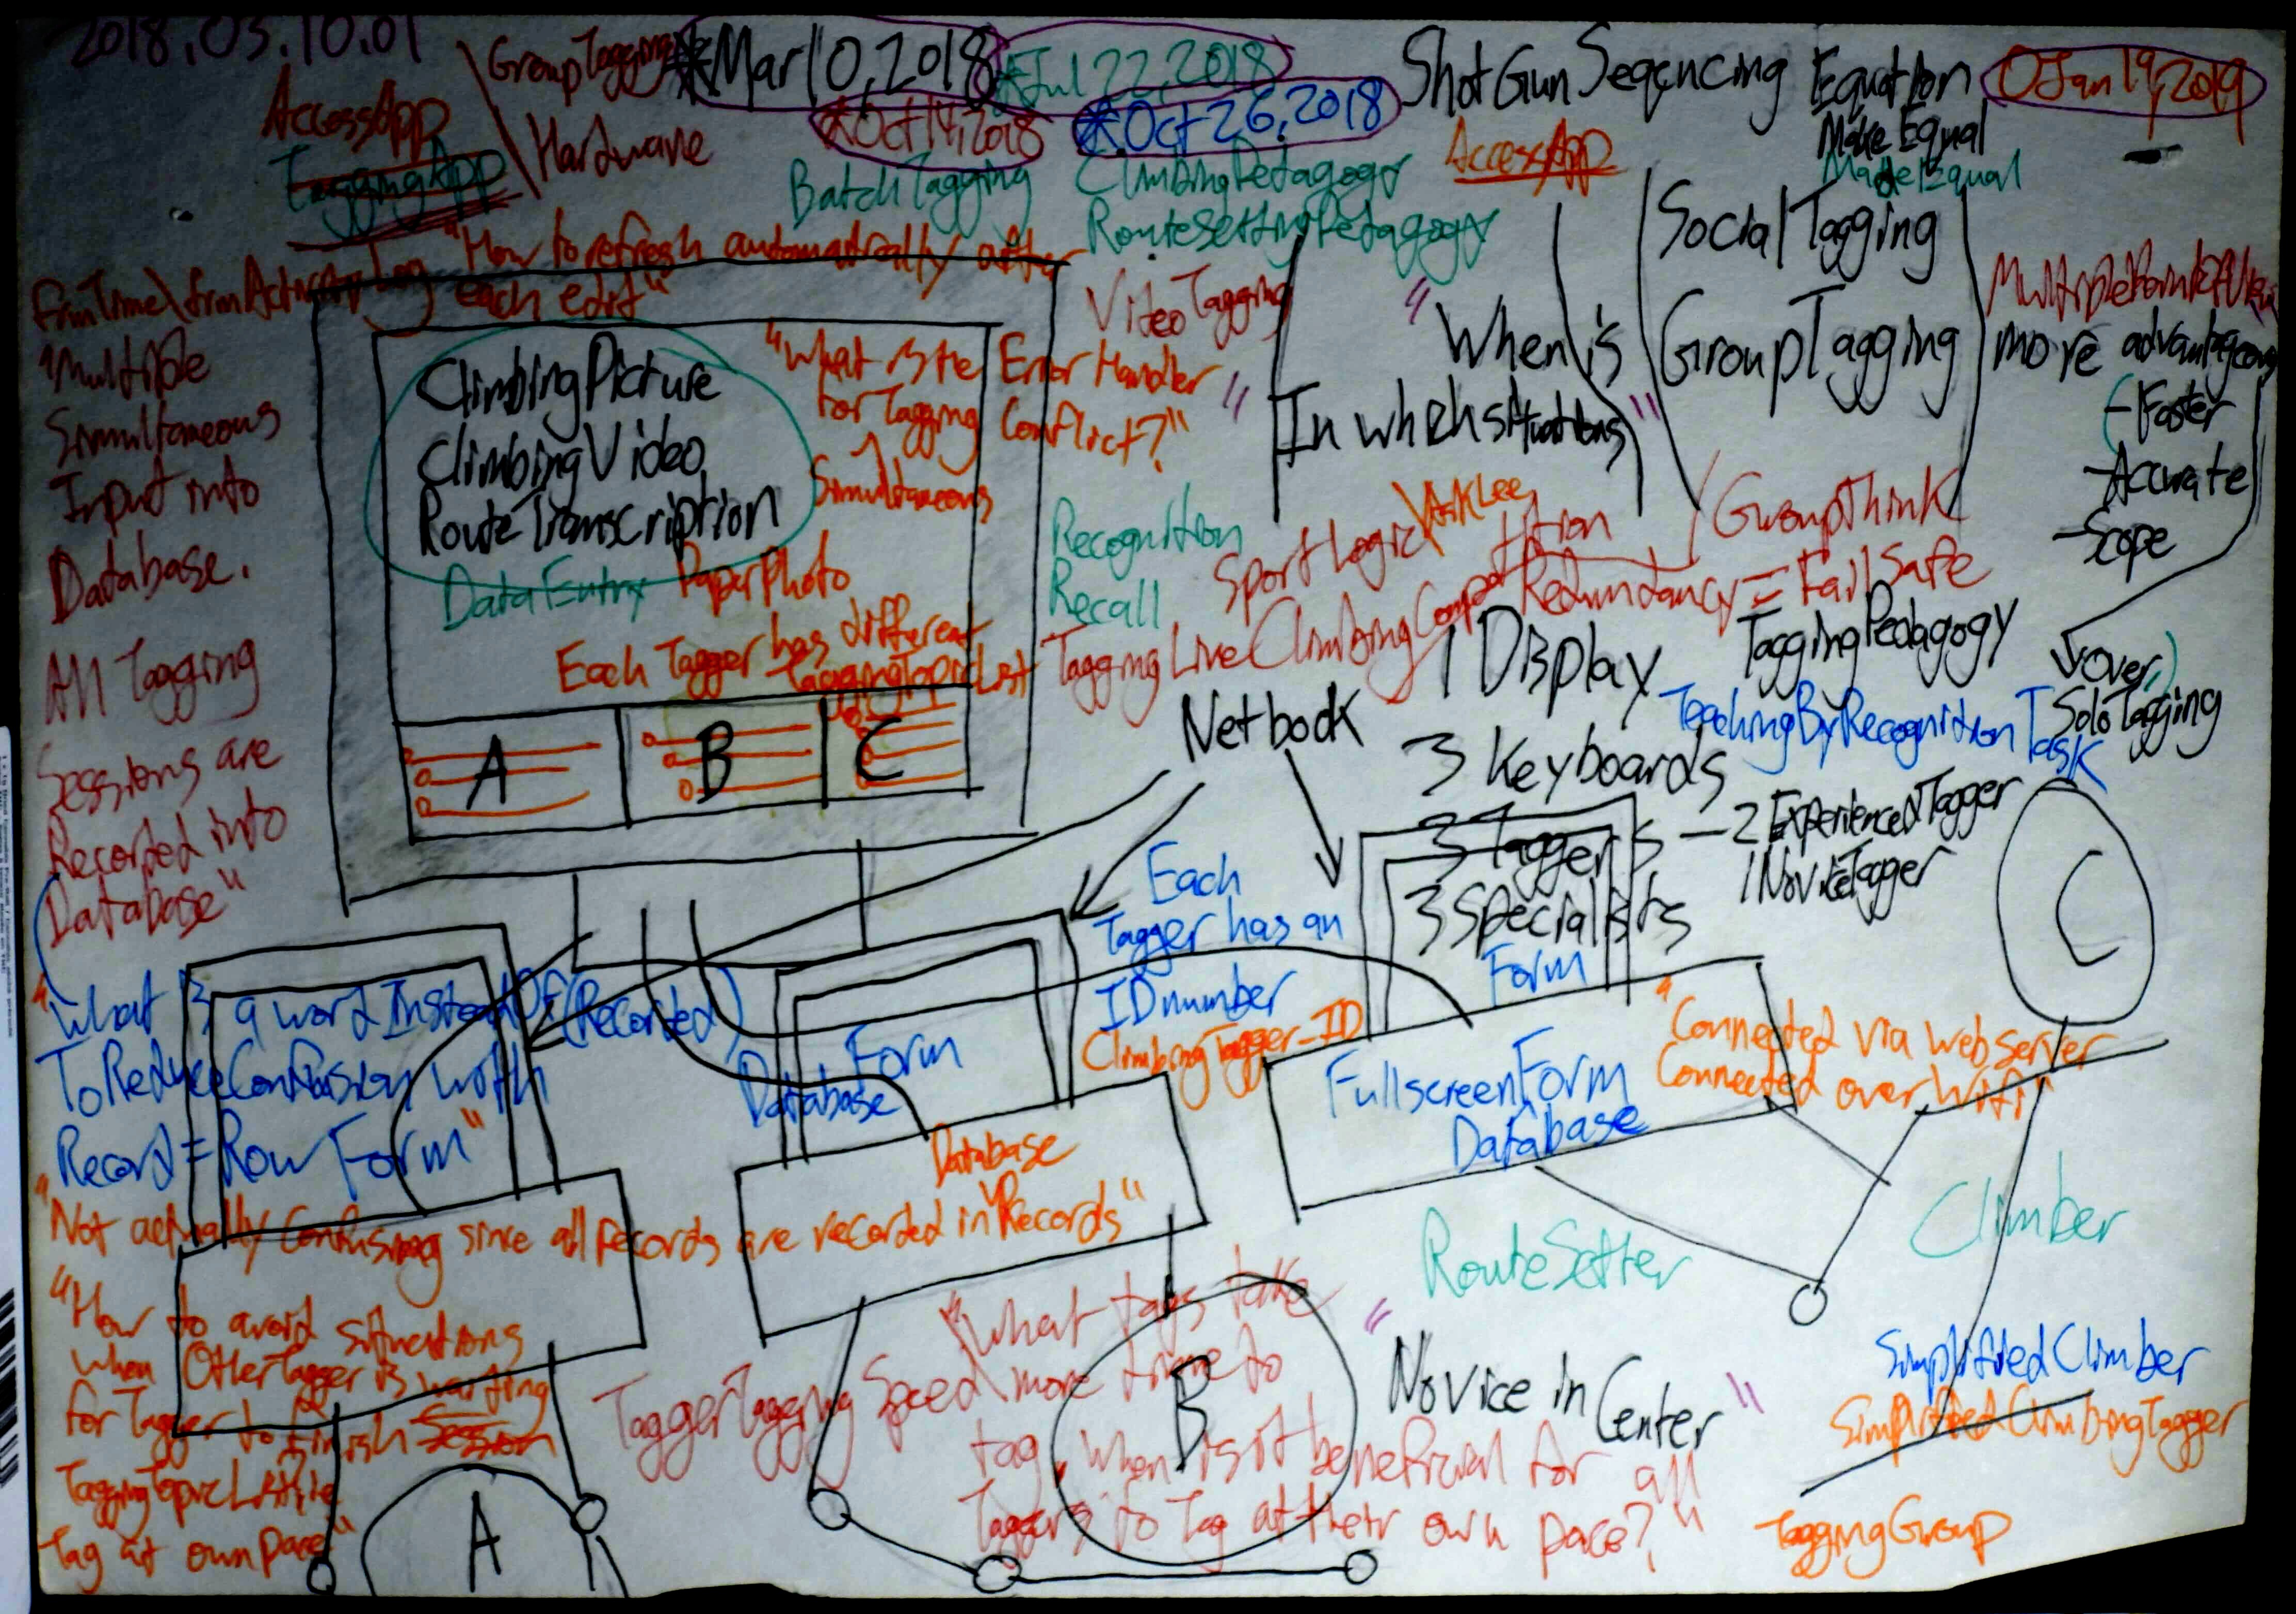 2018.03.10.01
GroupTagging
Hardware
*Mar10,2018
*Jul 22,2018
*Oct14,2018
*Oct 26,2018
ShotGunSeqencing Equation
OJan19,2019
Make Equal
MadeEqual
AccessApp
TaggingApp
BatchTagging
ClimbingPedagogy
RouteSettingPedagogy
AccessApp
"How to refresh automatically after
each edit"
VideoTagging
"Multiple
Simultaneous
Input into
Database.
All Tagging
Sessions are
Recorded into
Database"
ClimbingPicture
ClimbingVideo
RouteTranscription
DataEntry
PaperPhoto
"What is the Error Handler
for Tagging Conflict?"
Simultaneous
Each Tagger has different
TaggingTopicList
A
B
C
"When is
"In which situations"
SocialTagging
GroupTagging
more advantageous
-Faster
-Accurate
-Scope
over)
SoloTagging
Recognition
Recall
SportLogic\AskLee
GroupThink
Redundancy = FailSafe
TaggingLiveClimbingCompetition
TaggingPedagogy
TeachingByRecognitionTask
Netbook
1 Display
3 Keyboards
3 Taggers — 2 ExperiencedTagger
1 NoviceTagger
3 Specialists
Each
Tagger has an
IDnumber
ClimbingTagger_ID
Form
Form
Database
FullscreenForm
Database
"Connected via web server
Connected over Wifi"
C
"What is a word InsteadOf(Recorded)
ToReduceConfusion with
Record = Row Form"
"Not actually confusing since all records are recorded in Database "Records"
"How to avoid situations
when OtherTagger is waiting
for Tagger to finish Session
TaggingTopicList, ie
Tag at own pace"
TaggerTaggingSpeed
"What tags take
more time to
tag, when is it beneficial for all
Taggers to Tag at their own pace?"
RouteSetter
Climber
"Novice in Center"
SimplifiedClimber
SimplifiedClimbingTagger
TaggingGroup
A
B